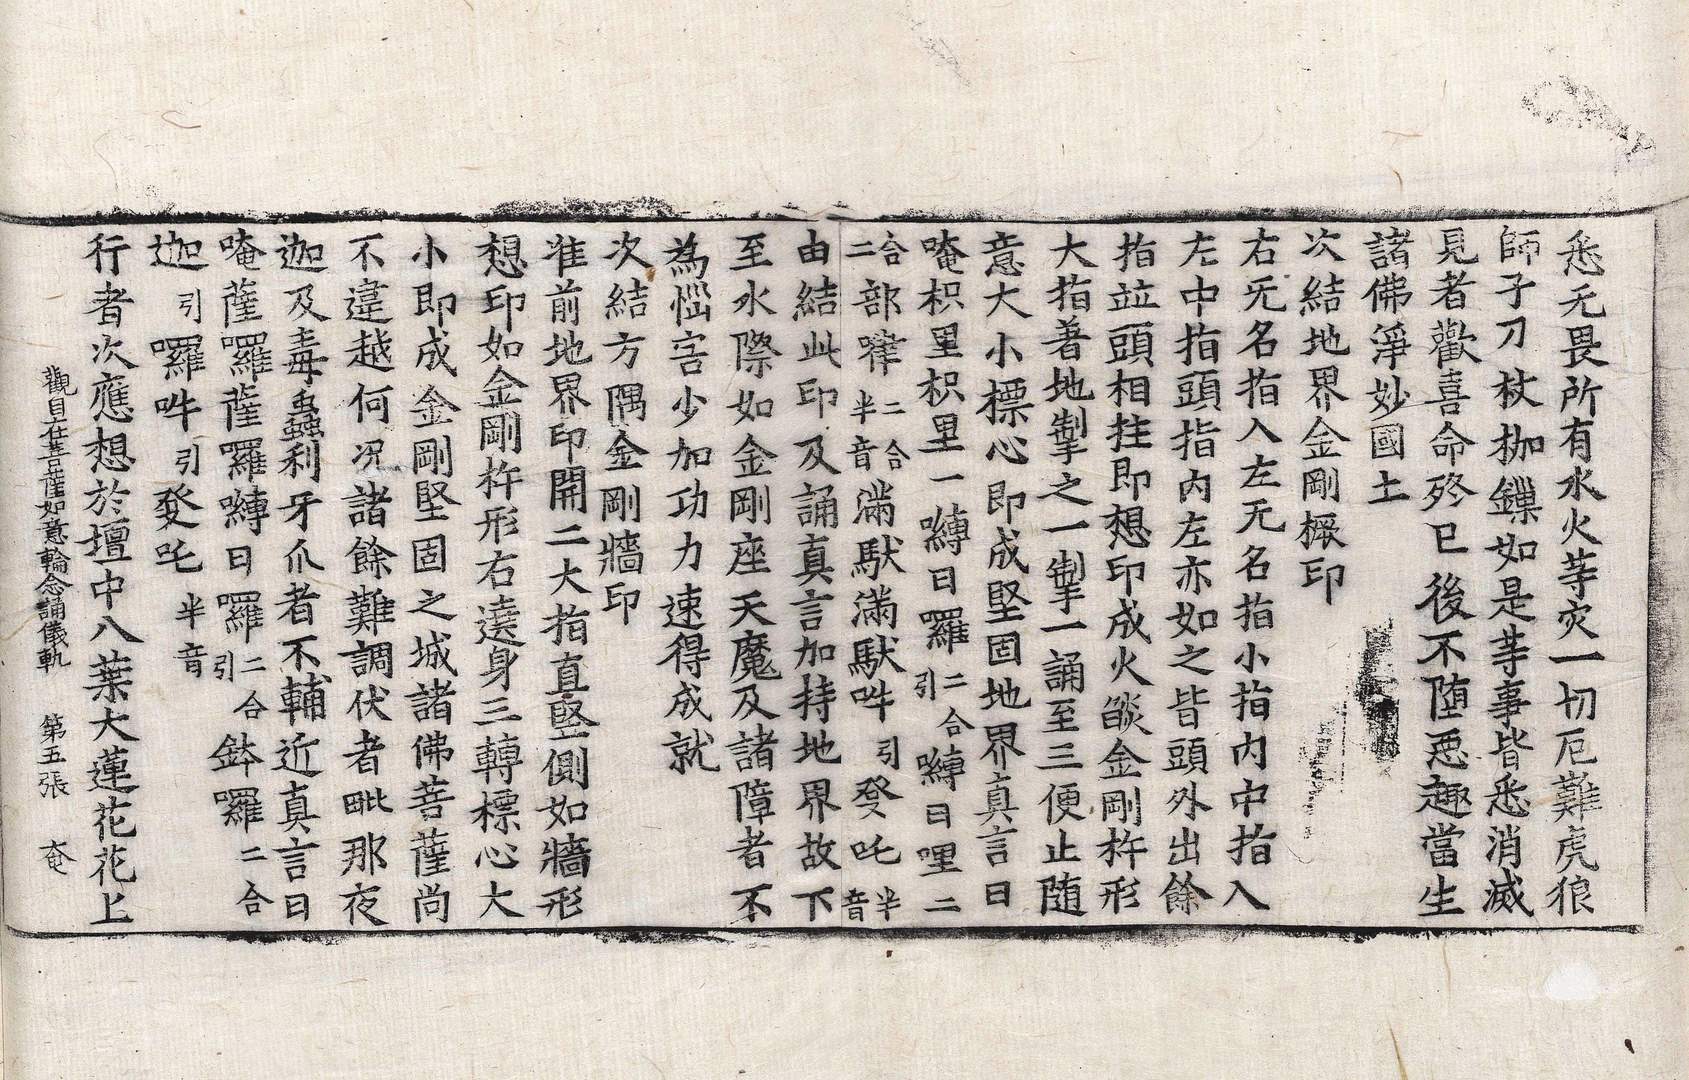 悉无畏所有水火等灾一切厄難虎狼
師子刀杖枷鏁如是等事皆悉消滅
見者歡喜命終已後不墮惡趣當生
諸佛淨妙國土
次結地界金剛橛印
右无名指入左无名指小指內中指入
左中指頭指內左亦如之皆頭外出餘
指並頭相拄即想印成火焰金剛杵形
大指著地掣之一掣一誦至三便止随
意大小標心即成堅固地界真言曰
唵枳里枳里一嚩日羅引二合嚩日哩二
合二部嚂半音二合滿馱滿馱吽引發吒半音
由結此印及誦真言加持地界故下
至水際如金剛座天魔及諸障者不
為惱害少加功力速得成就
次結方隅金剛牆印
准前地界印開二大指直竪側如牆形
想印如金剛杵形右遶身三轉標心大
小即成金剛堅固之城諸佛菩薩尚
不違越何况諸餘難調伏者毗那夜
迦及毒蟲利牙爪者不輔近真言曰
唵薩囉薩囉嚩日囉引二合鉢囉二合
迦引囉吽引發吒半音
行者次應想於壇中八葉大蓮花花上
觀自在菩薩如意輪念誦儀軌 第五張